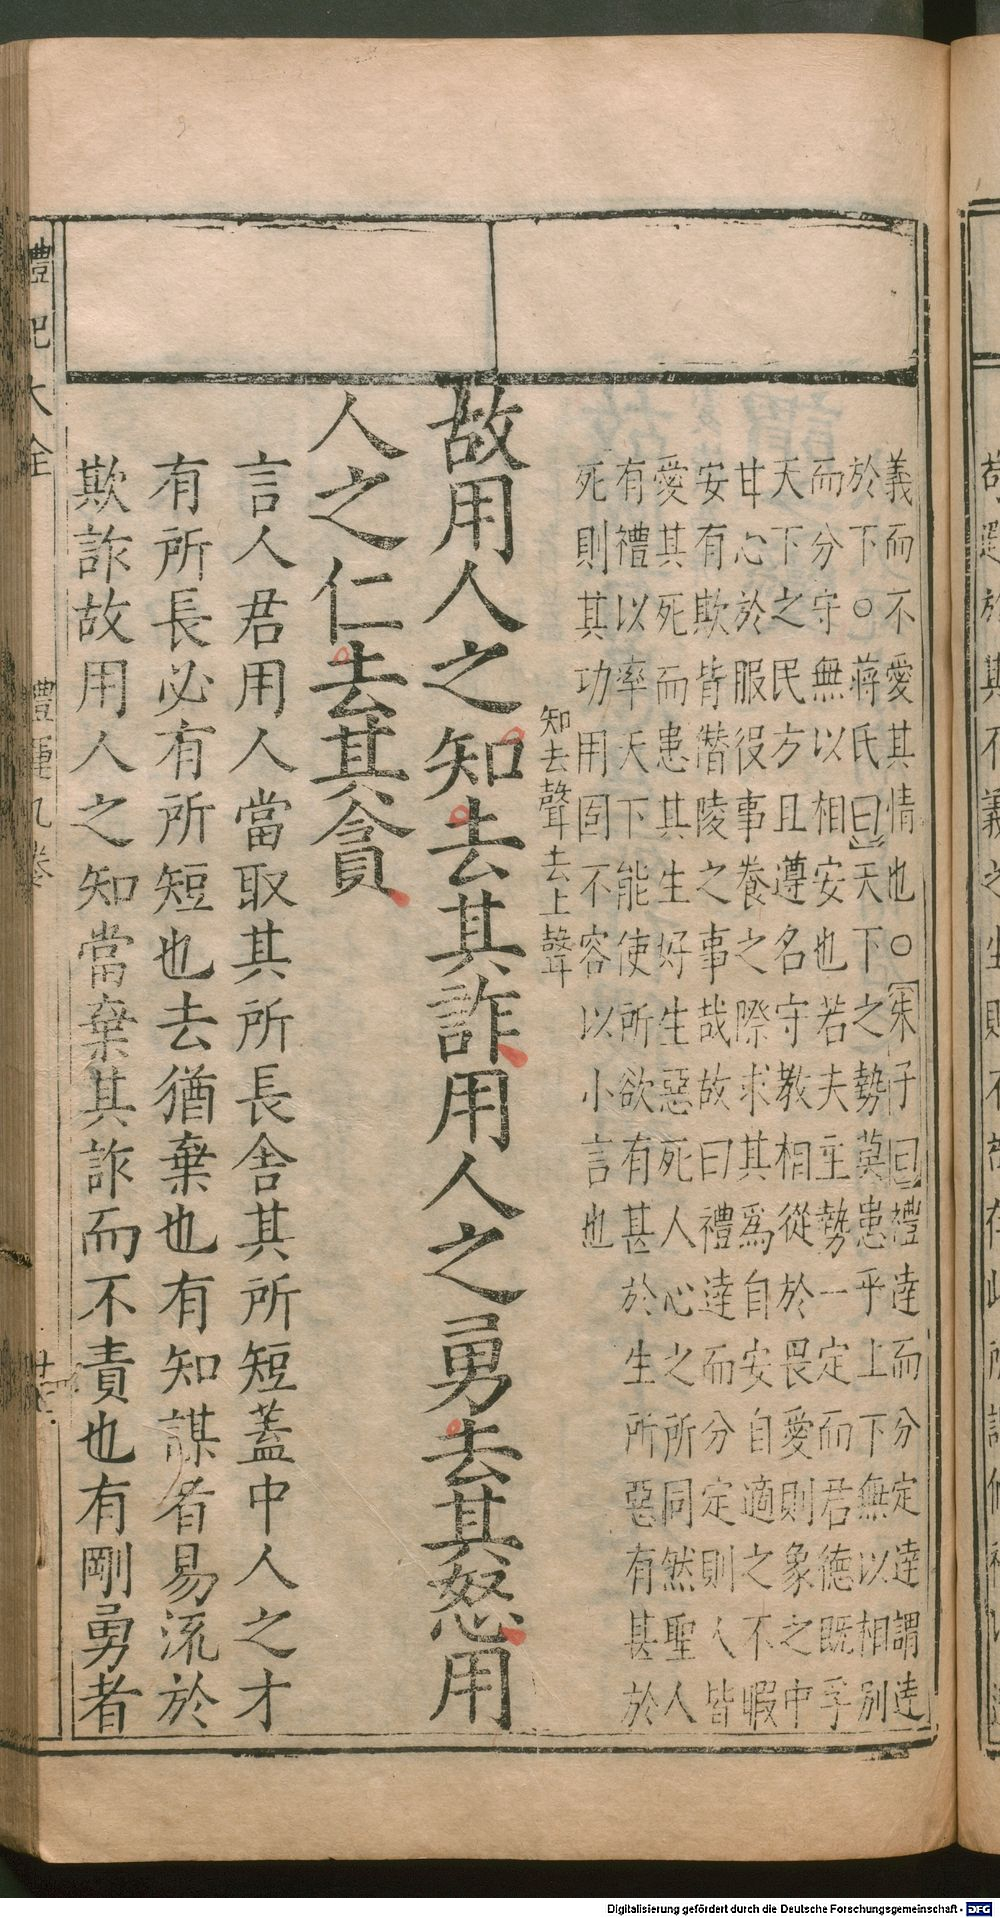 義而不愛其情也○朱子曰禮達而分定達謂達
於下○蔣氏曰天下之勢莫患乎上下無以相別
而分守無以相安也若夫主勢一定而君德既孚
天下之民方且遵名守教相從於畏愛則象之中
甘心於服役事養之際求其為自安自適之不暇
安有欺皆潛陵之事哉故曰禮達而分定則人皆
愛其死而患其生好生惡死人心之所同然聖人
有禮以率天下能使所欲有甚於生所惡有甚於
死則其功用固不容以小言也
知去聲去上聲
故用人之知去其詐用人之勇去其怒用
人之仁去其貪
言人君用人當取其所長舍其所短蓋中人之才
有所長必有所短也去猶棄也有知謀者易流於
欺詐故用人之知當棄其詐而不責也有剛勇者
禮記大全 禮運九卷
Digitalisierung gefördert durch die Deutsche Forschungsgemeinschaft - DFG